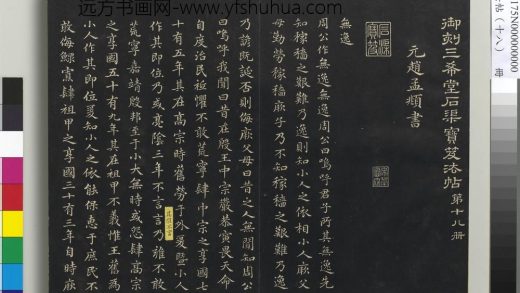 远方书画网 www.yfshuhua.com
御刻三希堂石渠寶笈法帖 第十八册
元趙孟頫書
石渠寶笈
無逸
周公作無逸周公曰嗚呼君子所其無逸先
知稼穡之艱難乃逸則知小人之依相小人厥父
母勤勞稼穡厥子乃不知稼穡之艱難乃逸
乃諺既誕否則侮厥父母曰昔之人無聞知周公
曰嗚呼我聞曰昔在殷王中宗嚴恭寅畏天命
自度治民祗懼不敢荒寧肆中宗之享國七
十有五年其在高宗時舊勞于外爰暨小人
作其即位乃或亮陰三年不言言乃雍不敢
荒寧嘉靖殷邦至于小大無時或怨肆高宗
之享國五十有九年其在祖甲不義惟王舊為
小人作其即位爰知小人之依能保惠于庶民不
敢侮鰥寡肆祖甲之享國三十有三年自時厥
175N0000000000
帖(十八)